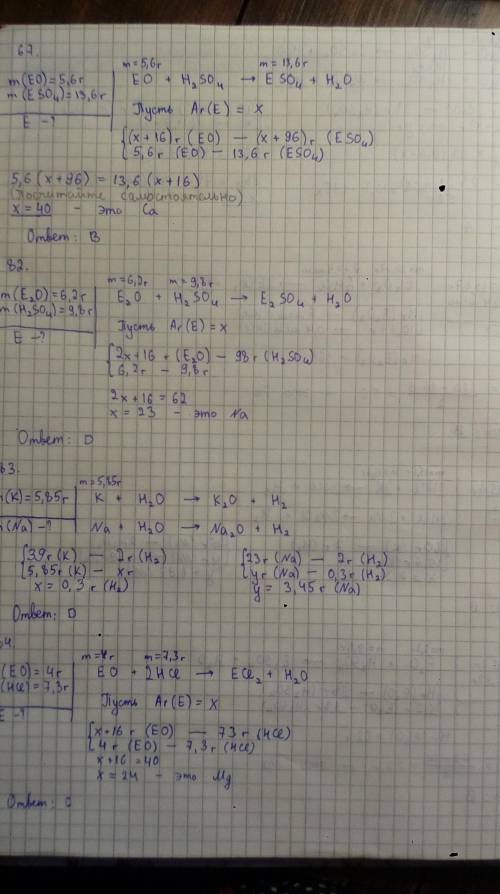 67.
m(EO)=5,6г
m(ESO₄)=13,6г
E - ?
m=5,6г m=13,6г
EO + H₂SO₄ → ESO₄ + H₂O
Пусть Ar(E) = x
{(x+16)г (EO) — (x+96)г (ESO₄)
{5,6г (EO) — 13,6г (ESO₄)
5,6(x+96) = 13,6(x+16)
(посчитайте самостоятельно)
x=40 - это Ca
Ответ: B
82.
m(E₂O)=6,2г
m(H₂SO₄)=9,8г
E - ?
m=6,2г m=9,8г
E₂O + H₂SO₄ → E₂SO₄ + H₂O
Пусть Ar(E)=x
{2x+16 г (E₂O) — 98г (H₂SO₄)
{6,2г — 9,8г
2x+16 = 62
x = 23 - это Na
Ответ: D
83.
m(K)=5,85г
m(Na) - ?
m=5,85г
K + H₂O → K₂O + H₂
Na + H₂O → Na₂O + H₂
{39г (K) — 2г (H₂)
{5,85г (K) — xг
x = 0,3г (H₂)
{23г (Na) — 2г (H₂)
{yг (Na) — 0,3г (H₂)
y = 3,45г (Na)
Ответ: D
4.
(EO)=4г
(HCl)=7,3г
E - ?
m=4г m=7,3г
EO + 2HCl → ECl₂ + H₂O
Пусть Ar(E) = x
{x+16г (EO) — 73г (HCl)
{4г (EO) — 7,3г (HCl)
x+16 = 40
x = 24 - это Mg
Ответ: C